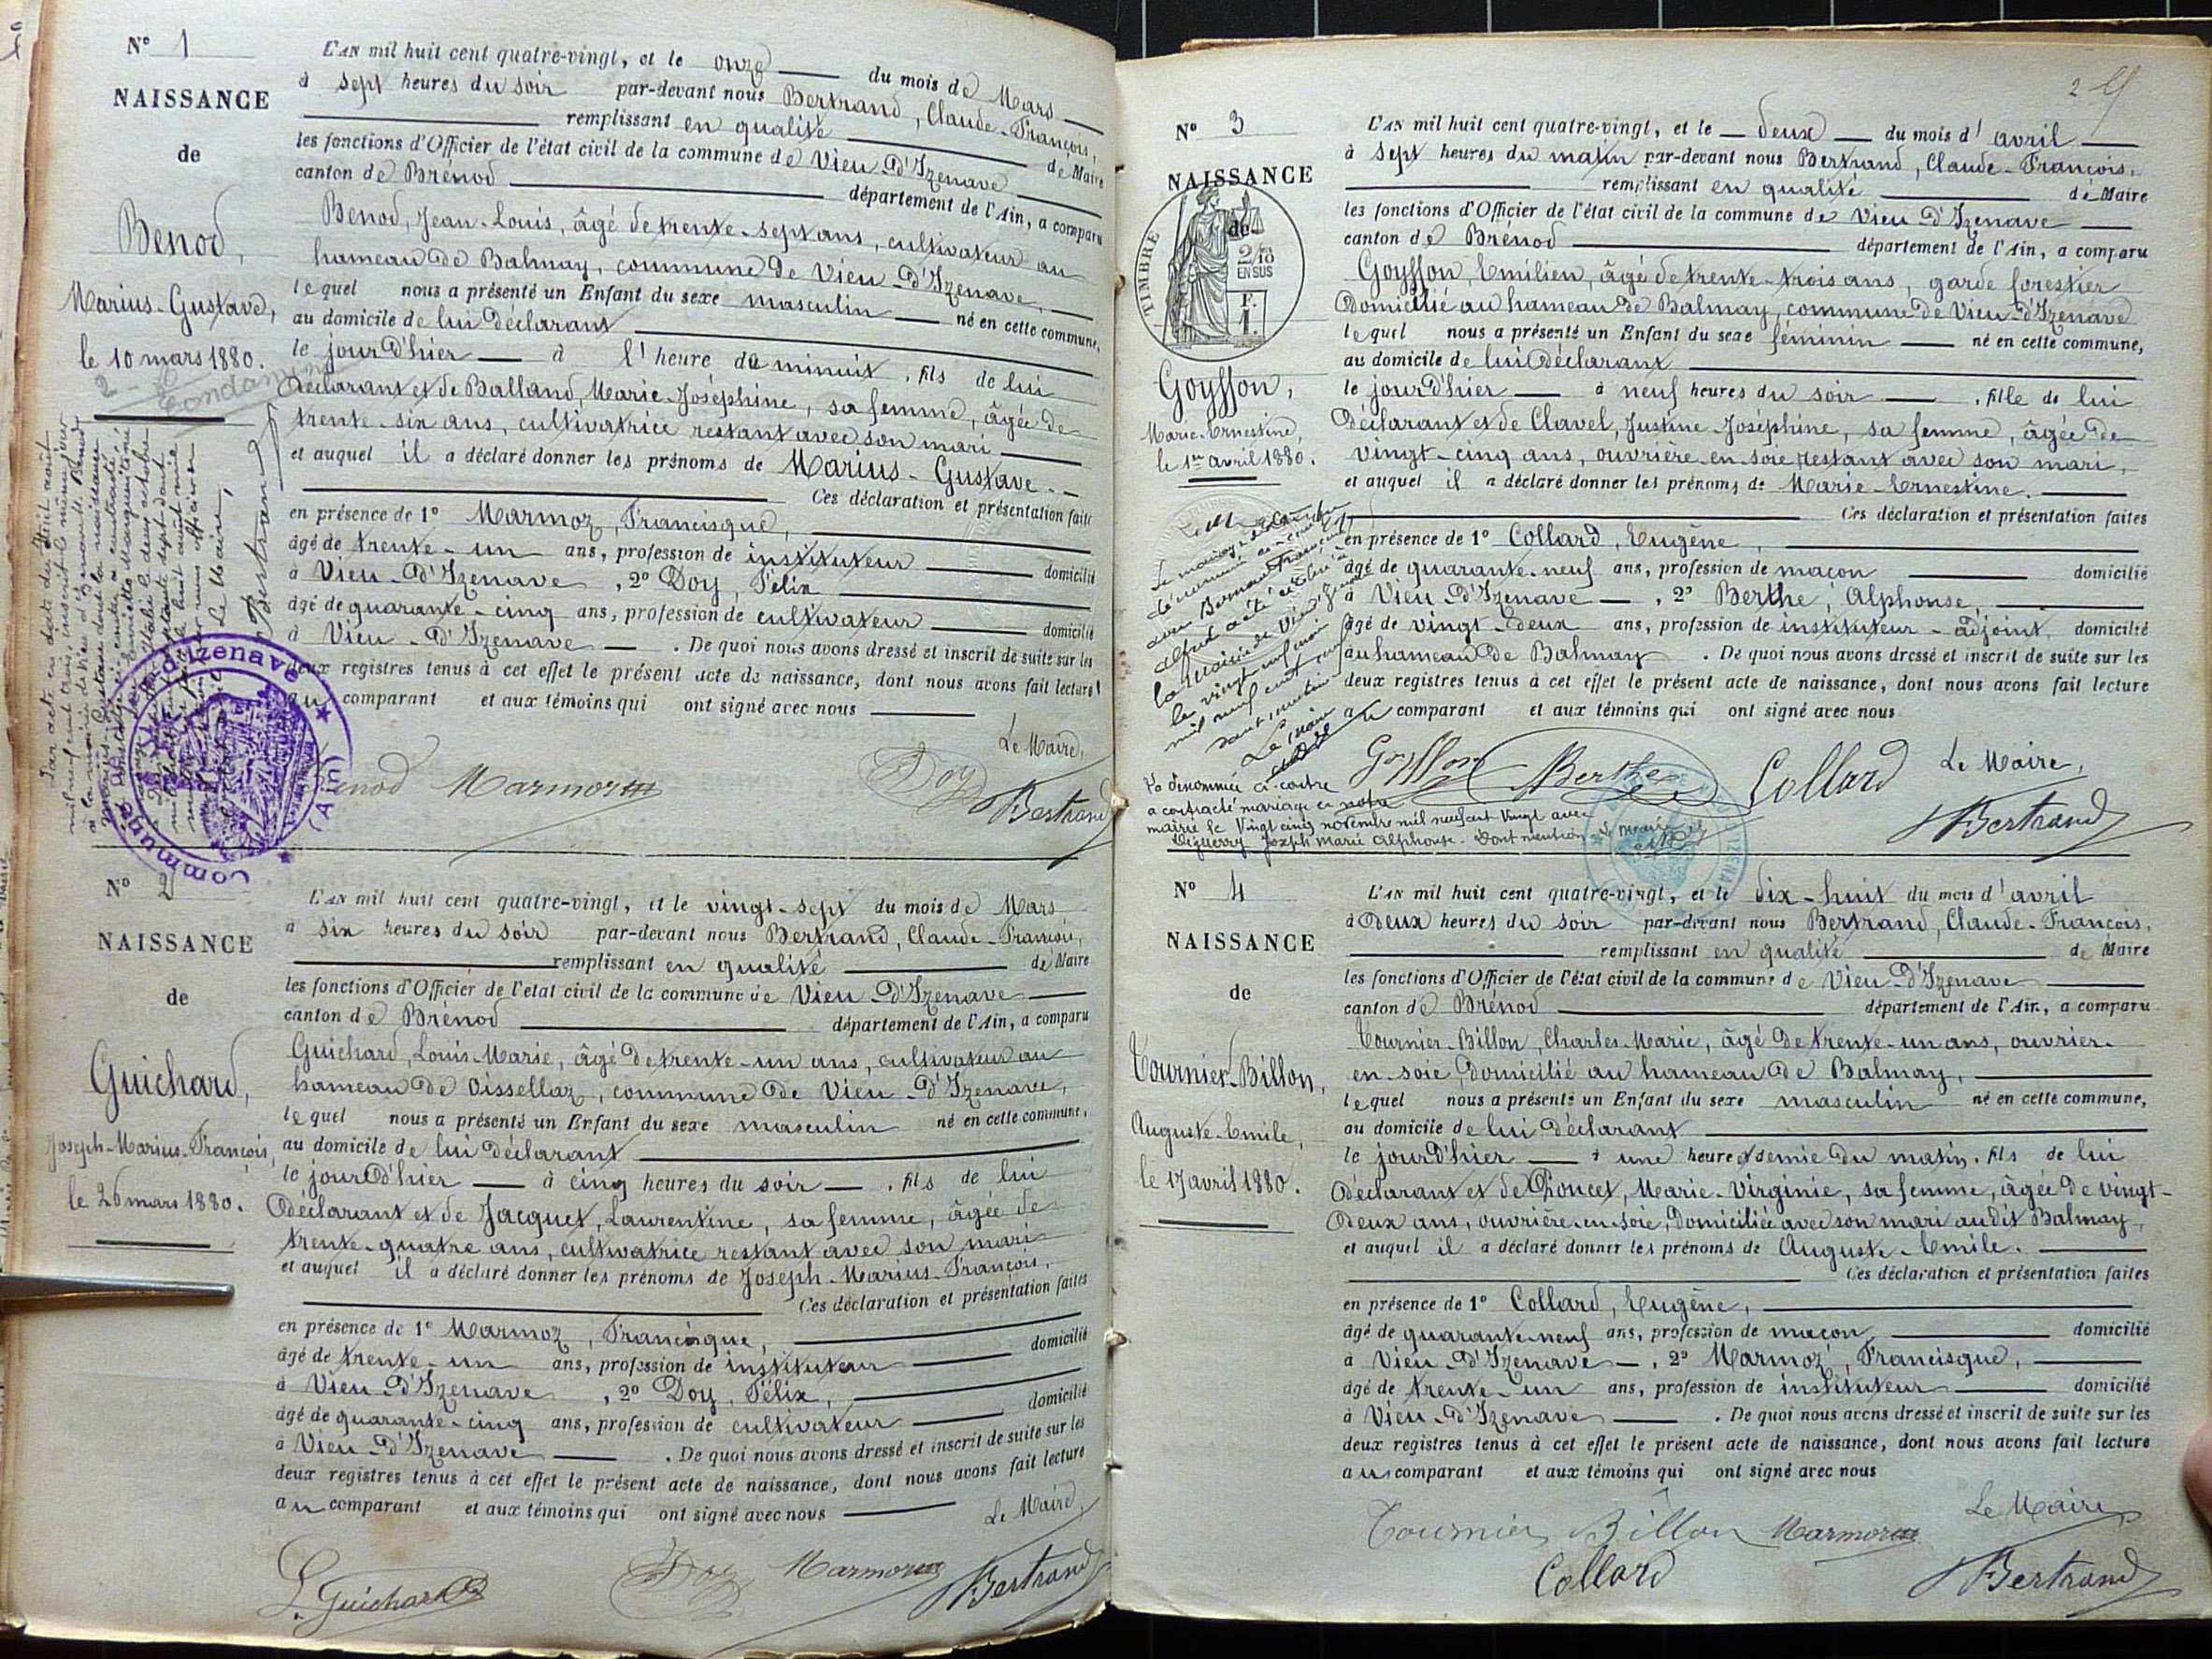 N° 1
NAISSANCE
de
Benod,
Marius-Gustave,
le 10 mars 1880.
L'AN mil huit cent quatre-vingt, et le onze du mois de Mars
à sept heures du soir par-devant nous Bertrand, Claude-François,
remplissant en qualité de Maire
les fonctions d'Officier de l'état civil de la commune de Vieu-d'Izenave
canton de Brénod département de l'Ain, a comparu
Benod, Jean-Louis, âgé de trente-sept ans, cultivateur au
hameau de Balmay, commune de Vieu-d'Izenave,
lequel nous a présenté un Enfant du sexe masculin né en cette commune,
au domicile de lui déclarant
le jour d'hier à l'heure de minuit, fils de lui
déclarant et de Balland, Marie-Joséphine, sa femme, âgée de
trente-six ans, cultivatrice restant avec son mari
et auquel il a déclaré donner les prénoms de Marius-Gustave.
Ces déclaration et présentation faites
en présence de 1° Marmoz, Francisque,
âgé de trente-un ans, profession de instituteur domicilié
à Vieu-d'Izenave, 2° Doy, Félix
âgé de quarante-cinq ans, profession de cultivateur domicilié
à Vieu-d'Izenave. De quoi nous avons dressé et inscrit de suite sur les
deux registres tenus à cet effet le présent acte de naissance, dont nous avons fait lecture
au comparant et aux témoins qui ont signé avec nous
Le Maire,
Benod Marmoz Doy Bertrand
Le Maire,
Bertrand
Commune de Vieu d'Izenave (Ain)
N° 2
NAISSANCE
de
Guichard,
Joseph-Marius-François,
le 26 mars 1880.
L'AN mil huit cent quatre-vingt, et le vingt-sept du mois de Mars
à six heures du soir par-devant nous Bertrand, Claude-François,
remplissant en qualité de Maire
les fonctions d'Officier de l'état civil de la commune de Vieu-d'Izenave
canton de Brénod département de l'Ain, a comparu
Guichard, Louis-Marie, âgé de trente-un ans, cultivateur au
hameau de Oissellaz, commune de Vieu-d'Izenave,
lequel nous a présenté un Enfant du sexe masculin né en cette commune,
au domicile de lui déclarant
le jour d'hier à cinq heures du soir, fils de lui
déclarant et de Jacquet, Laurentine, sa femme, âgée de
trente-quatre ans, cultivatrice restant avec son mari
et auquel il a déclaré donner les prénoms de Joseph-Marius-François.
Ces déclaration et présentation faites
en présence de 1° Marmoz, Francisque,
âgé de trente-un ans, profession de instituteur domicilié
à Vieu-d'Izenave, 2° Doy, Félix,
âgé de quarante-cinq ans, profession de cultivateur domicilié
à Vieu-d'Izenave. De quoi nous avons dressé et inscrit de suite sur les
deux registres tenus à cet effet le présent acte de naissance, dont nous avons fait lecture
au comparant et aux témoins qui ont signé avec nous
Le Maire,
L. Guichard Doy Marmoz Bertrand
2
N° 3
NAISSANCE
de
TIMBRE
2/10
EN SUS
F.
1.
Goyffon,
Marie-Ernestine,
le 1er avril 1880.
L'AN mil huit cent quatre-vingt, et le deux du mois d'avril
à sept heures du matin par-devant nous Bertrand, Claude-François,
remplissant en qualité de Maire
les fonctions d'Officier de l'état civil de la commune de Vieu-d'Izenave
canton de Brénod département de l'Ain, a comparu
Goyffon, Emilien, âgé de trente-trois ans, garde forestier
domicilié au hameau de Balmay, commune de Vieu-d'Izenave
lequel nous a présenté un Enfant du sexe féminin né en cette commune,
au domicile de lui déclarant
le jour d'hier à neuf heures du soir, fille de lui
déclarant et de Clavel, Justine-Joséphine, sa femme, âgée de
vingt-cinq ans, ouvrière en soie restant avec son mari,
et auquel il a déclaré donner les prénoms de Marie-Ernestine.
Ces déclaration et présentation faites
en présence de 1° Collard, Eugène,
âgé de quarante-neuf ans, profession de maçon domicilié
à Vieu-d'Izenave, 2° Berthe, Alphonse,
âgé de vingt-deux ans, profession de instituteur-adjoint, domicilié
au hameau de Balmay. De quoi nous avons dressé et inscrit de suite sur les
deux registres tenus à cet effet le présent acte de naissance, dont nous avons fait lecture
au comparant et aux témoins qui ont signé avec nous
Goyffon Berthe Collard Le Maire,
Bertrand
La dénommée ci-contre
a contracté mariage en notre
mairie le Vingt cinq novembre mil neuf cent Vingt avec
Joseph Marie Alphonse. Dont mention
N° 4
NAISSANCE
de
Tournier-Billon,
Auguste-Emile,
le 17 avril 1880.
L'AN mil huit cent quatre-vingt, et le dix-huit du mois d'avril
à deux heures du soir par-devant nous Bertrand, Claude-François,
remplissant en qualité de Maire
les fonctions d'Officier de l'état civil de la commune de Vieu-d'Izenave
canton de Brénod département de l'Ain, a comparu
Tournier-Billon, Charles-Marie, âgé de trente-un ans, ouvrier
en soie, domicilié au hameau de Balmay,
lequel nous a présenté un Enfant du sexe masculin né en cette commune,
au domicile de lui déclarant
le jour d'hier à une heure et demie du matin, fils de lui
déclarant et de Poncet, Marie-Virginie, sa femme, âgée de vingt-
deux ans, ouvrière en soie, domiciliée avec son mari au dit Balmay,
et auquel il a déclaré donner les prénoms de Auguste-Emile.
Ces déclaration et présentation faites
en présence de 1° Collard, Eugène,
âgé de quarante-neuf ans, profession de maçon domicilié
à Vieu-d'Izenave, 2° Marmoz, Francisque,
âgé de trente-un ans, profession de instituteur domicilié
à Vieu-d'Izenave. De quoi nous avons dressé et inscrit de suite sur les
deux registres tenus à cet effet le présent acte de naissance, dont nous avons fait lecture
au comparant et aux témoins qui ont signé avec nous
Le Maire
Tournier Billon Marmoz
Collard Bertrand